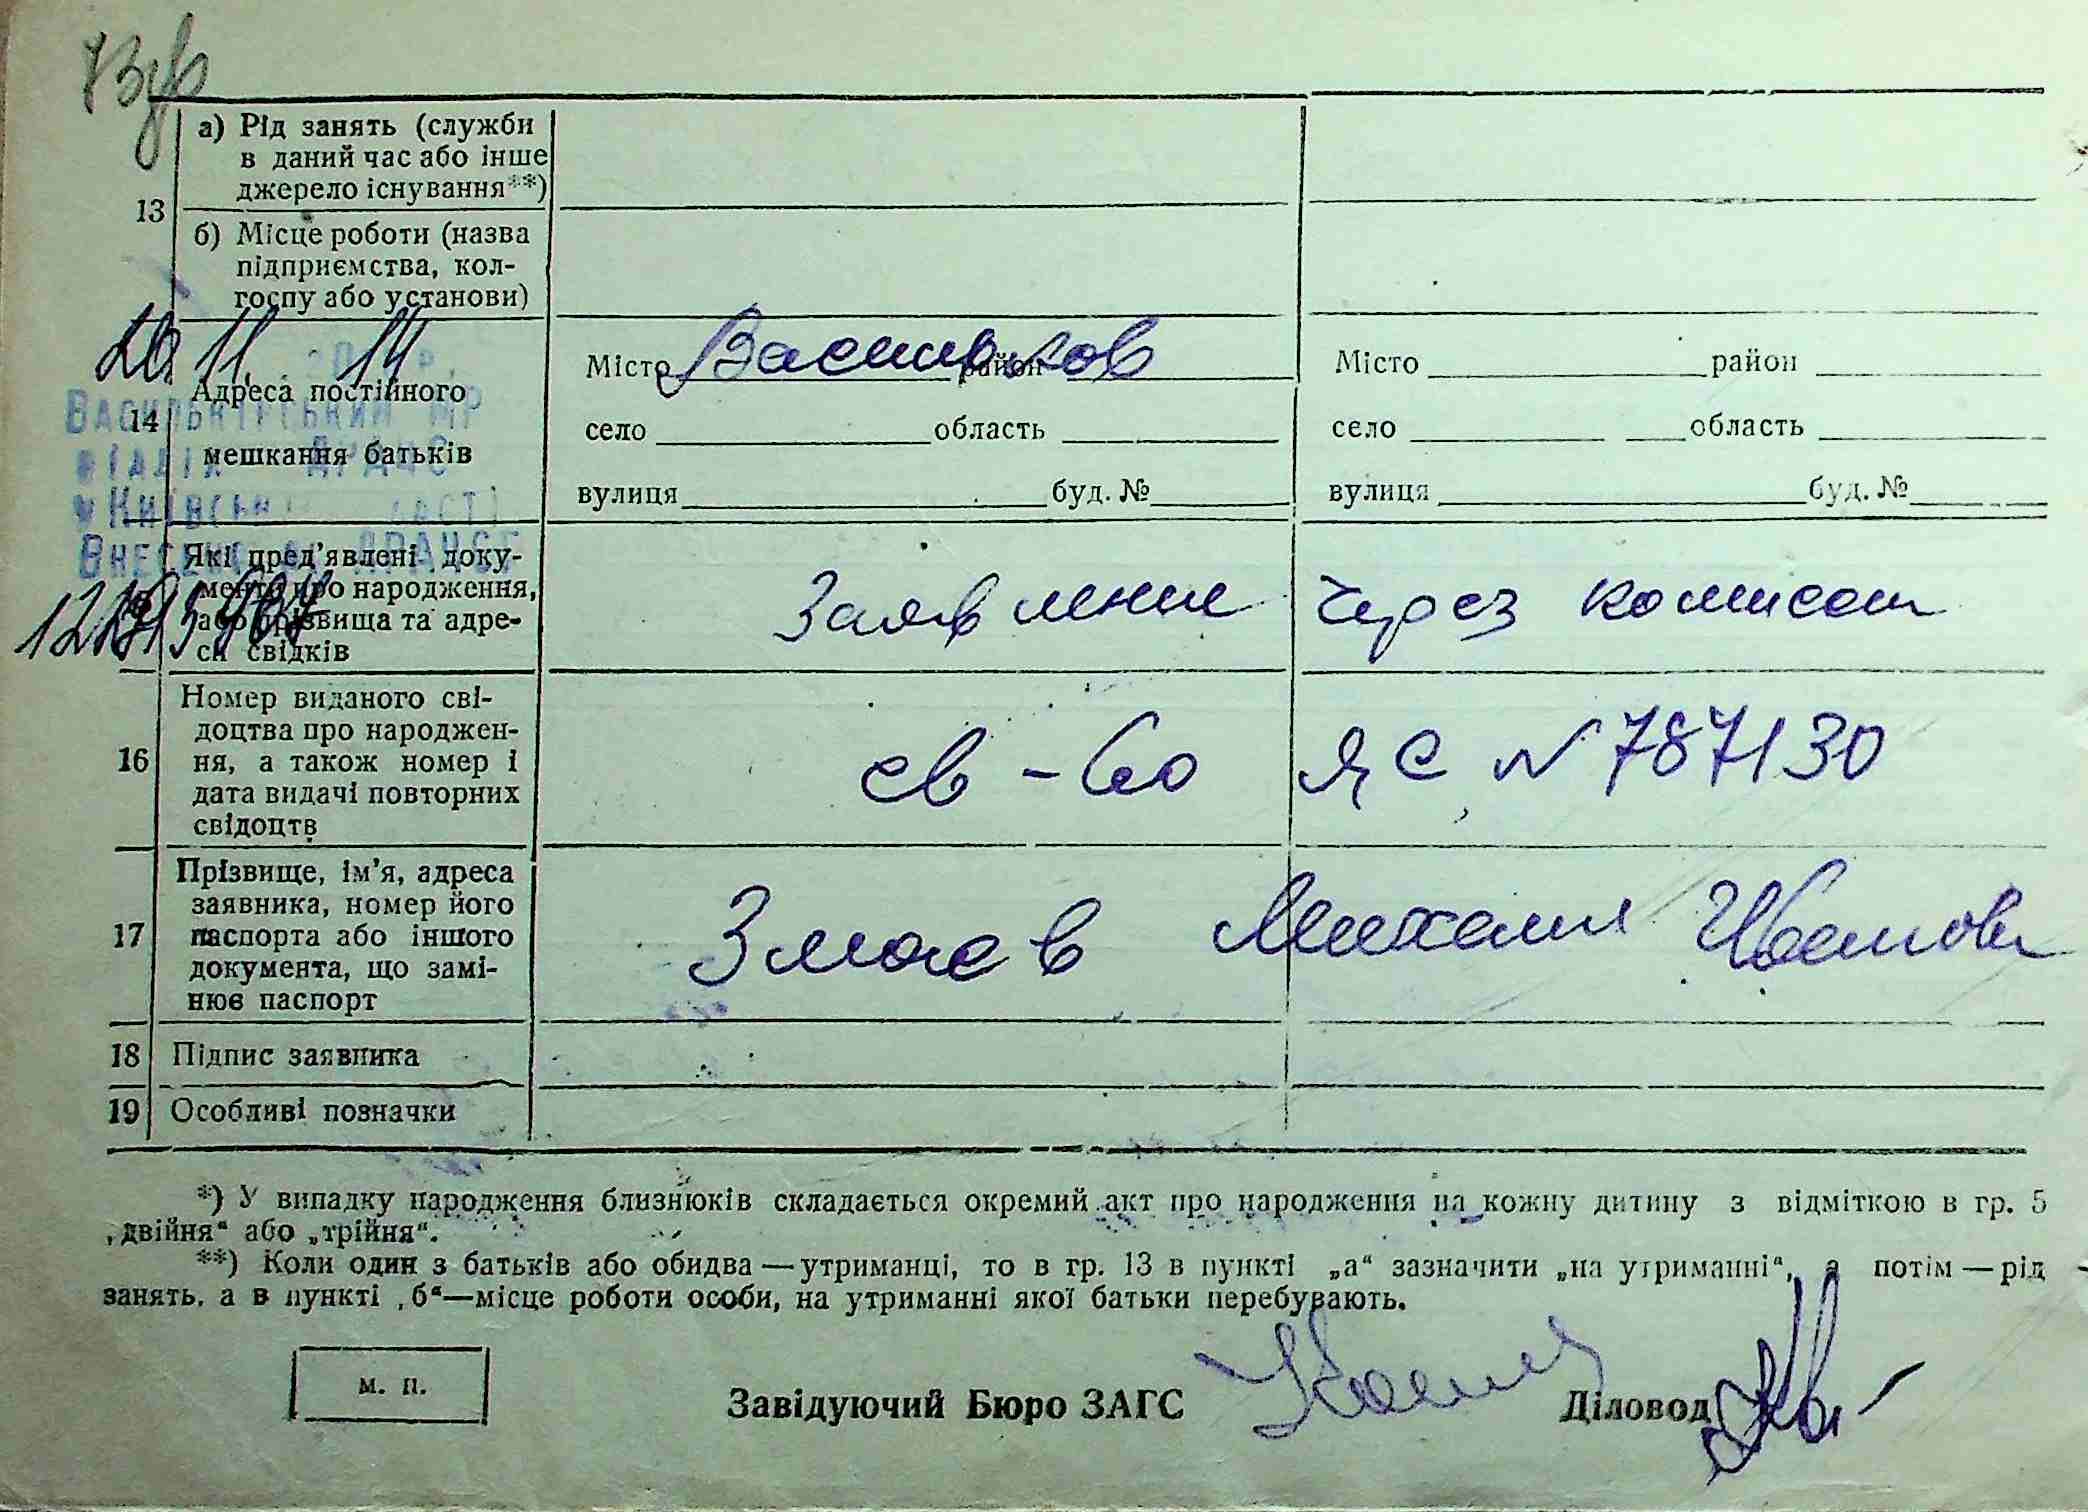 а) Рід занять (служби
в даний час або інше
джерело існування**)
13
б) Місце роботи (назва
підприємства, кол-
госпу або установи)
20 11 14
Місто Васильков район
Місто район
Адреса постійного
14
село область
село область
мешкання батьків
вулиця буд. №
вулиця буд. №
Васильківський МР
відділ ДРАЦС
Які пред'явлені доку-
менти про народження,
або прізвища та адре-
си свідків
Заявление через комисси
16
Номер виданого сві-
доцтва про народжен-
ня, а також номер і
дата видачі повторних
свідоцтв
св-во ЯС № 787130
17
Прізвище, ім'я, адреса
заявника, номер його
паспорта або іншого
документа, що замі-
нює паспорт
Змаев Михаил Иванови
18 Підпис заявника
19 Особливі позначки
*) У випадку народження близнюків складається окремий акт про народження на кожну дитину з відміткою в гр. 5
„двійня“ або „трійня“.
**) Коли один з батьків або обидва — утриманці, то в гр. 13 в пункті „а“ зазначити „на утриманні“, а потім — рід
занять, а в пункті „б“ — місце роботи особи, на утриманні якої батьки перебувають.
м. п.
Завідуючий Бюро ЗАГС
Діловод